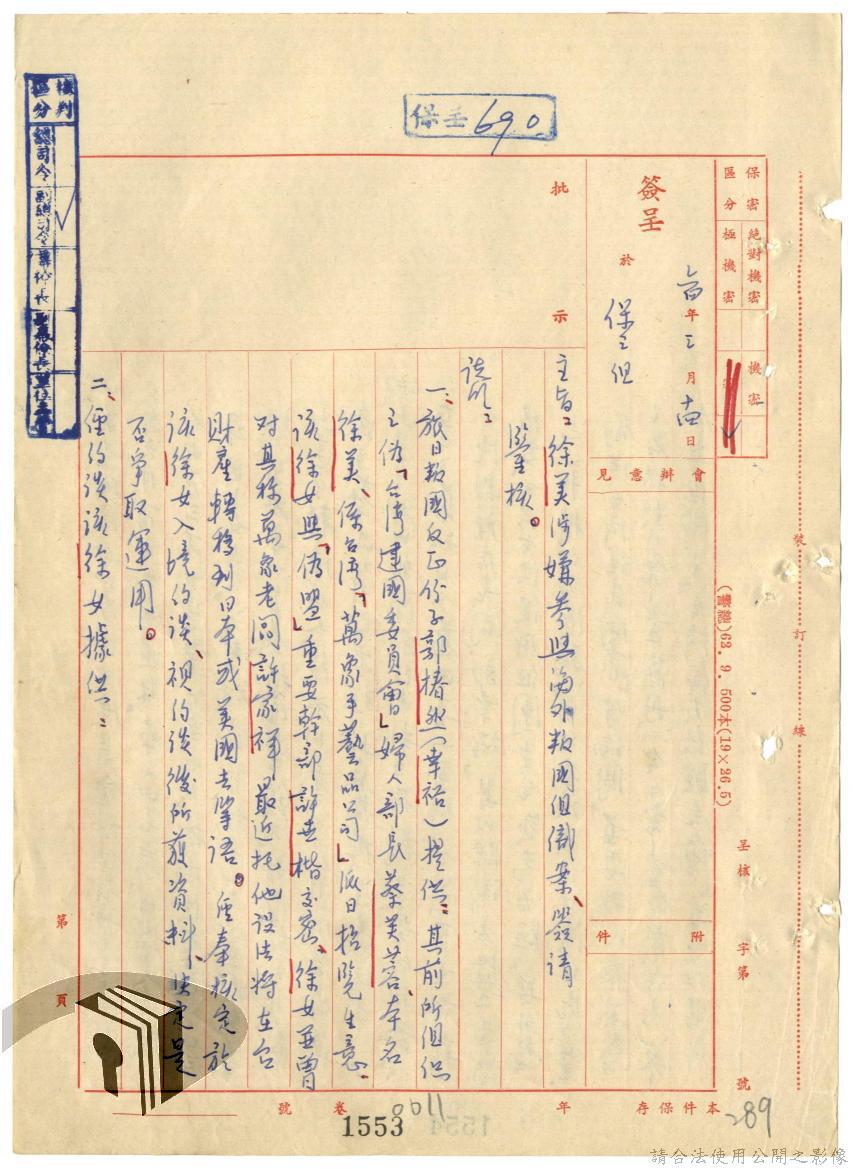 保防 690
核判區分
總司令
副總司令
參謀長
副參謀長
單位主管
保密區分
絕對機密
極機密
機密
簽呈
於
保三組
六四年三月十四日
會辦意見
附件
批示
主旨：徐美涉嫌參與海外叛國組織案、簽請
鑒核。
說明：
一、旅日叛國反正份子郭椿然（韋裕）提供：其前所組織
之偽「台灣建國委員會」婦人部長蔡芙蓉、本名
徐美、係台灣「萬象手藝品公司」派日招覽生意、
該徐女與「偽盟」重要幹部許世楷交密、徐女並曾
對其稱萬象老闆許家祥最近托他設法將在台
財產轉移到日本或美國去等語。經奉核定於
該徐女入境約談、視約談後所獲資料、決定是
否爭取運用。
二、經約談該徐女據供：
裝訂線
63．9．500本(19×26.5)
呈核 字第 號
第 頁
本件保存 年 卷 號
0011
289
1553
請合法使用公開之影像